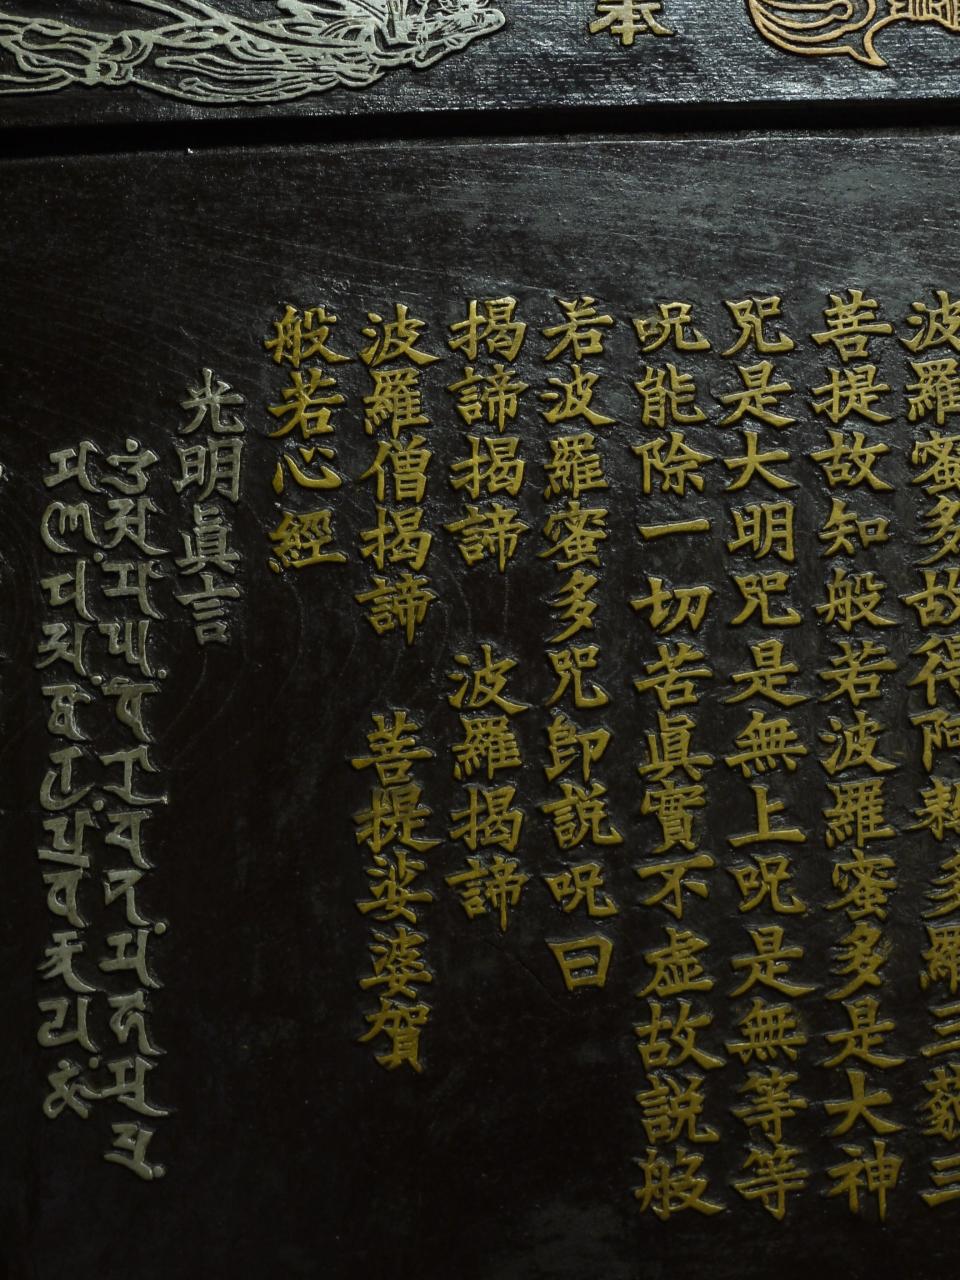 本
波羅蜜多故得阿耨多羅三藐三
菩提故知般若波羅蜜多是大神
咒是大明咒是無上呪是無等等
呪能除一切苦眞實不虛故説般
若波羅蜜多咒即説呪曰
揭諦揭諦 波羅揭諦
波羅僧揭諦 菩提娑婆賀
般若心經
光明眞言
𑖌𑖼𑖀𑖦𑖺𑖑𑖪𑖹𑖨𑖺𑖓𑖡𑖦𑖮𑖯𑖦𑖲𑖟𑖿𑖨𑖯
𑖦𑖜𑖰𑖢𑖟𑖿𑖦𑖕𑖿𑖪𑖩𑖢𑖿𑖨𑖪𑖨𑖿𑖝𑖿𑖝𑖧𑖮𑖳𑖽